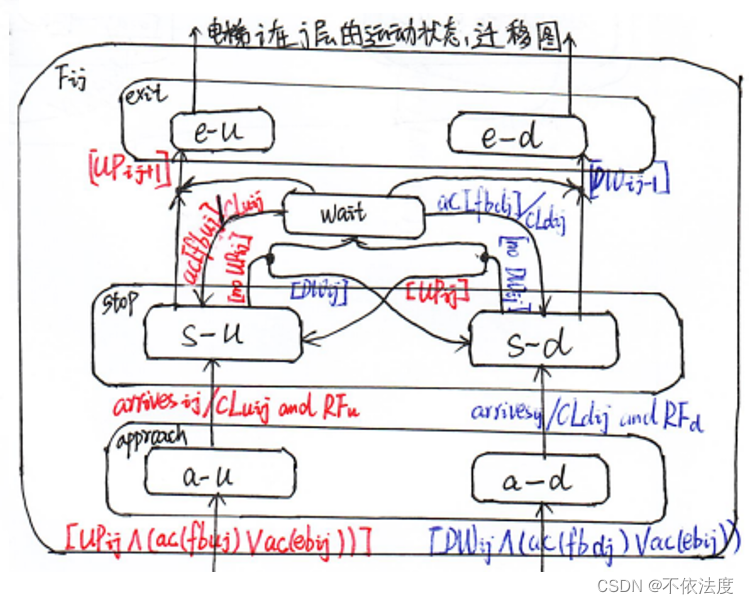 电梯i在j层的运动状态迁移图
Fij
exit
e-u
e-d
[UPij+1]
[DWij-1]
wait
ac[fbuj]/CLuij
ac[fbdj]/CLdij
[no UPij]
[no DWij]
[DWij]
[UPij]
stop
s-u
s-d
arrives ij/CLuij and RFu
arrivesij/CLdij and RFd
approach
a-u
a-d
[UPij∧(ac(fbuj)∨ac(ebij))]
[DWij∧(ac(fbdj)∨ac(ebij))
CSDN @不依法度